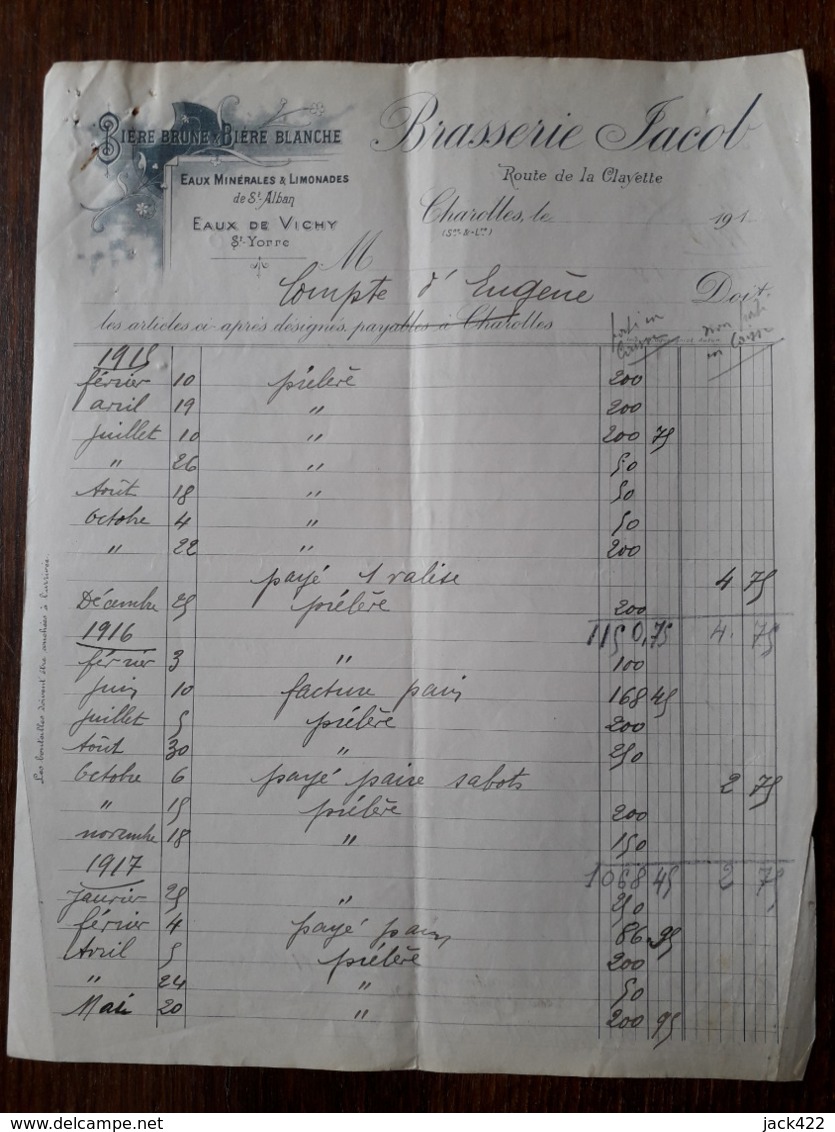 BIÈRE BRUNE & BIÈRE BLANCHE
Brasserie Jacob
EAUX MINÉRALES & LIMONADES
de St-Alban
Route de la Clayette
EAUX DE VICHY
St-Yorre
Charolles, le 191
(Sne-&-Lre)
M
Compte d'Eugène Doit
les articles ci-après désignés, payables à Charolles
porté en Caisse
non porté en Caisse
1915
février 10 prélevé 200
avril 19 " 200
juillet 10 " 200 75
" 26 " 50
Août 18 " 50
Octobre 4 " 50
" 22 " 200
payé 1 valise 4 75
Décembre 25 prélevé 200
1916 1150,75 4. 75
février 3 " 100
juin 10 facture pain 168 45
juillet 5 prélevé 200
Août 30 " 250
Octobre 6 payé paire sabots 2 75
" 15 prélevé 200
novembre 18 " 150
1917 1068 45 2 75
janvier 25 " 250
février 4 payé pain 86.95
Avril 5 prélevé 200
" 24 " 50
Mai 20 " 200 95
Les bouteilles doivent être couchées à l'arrivée
delcampe.net
jack422